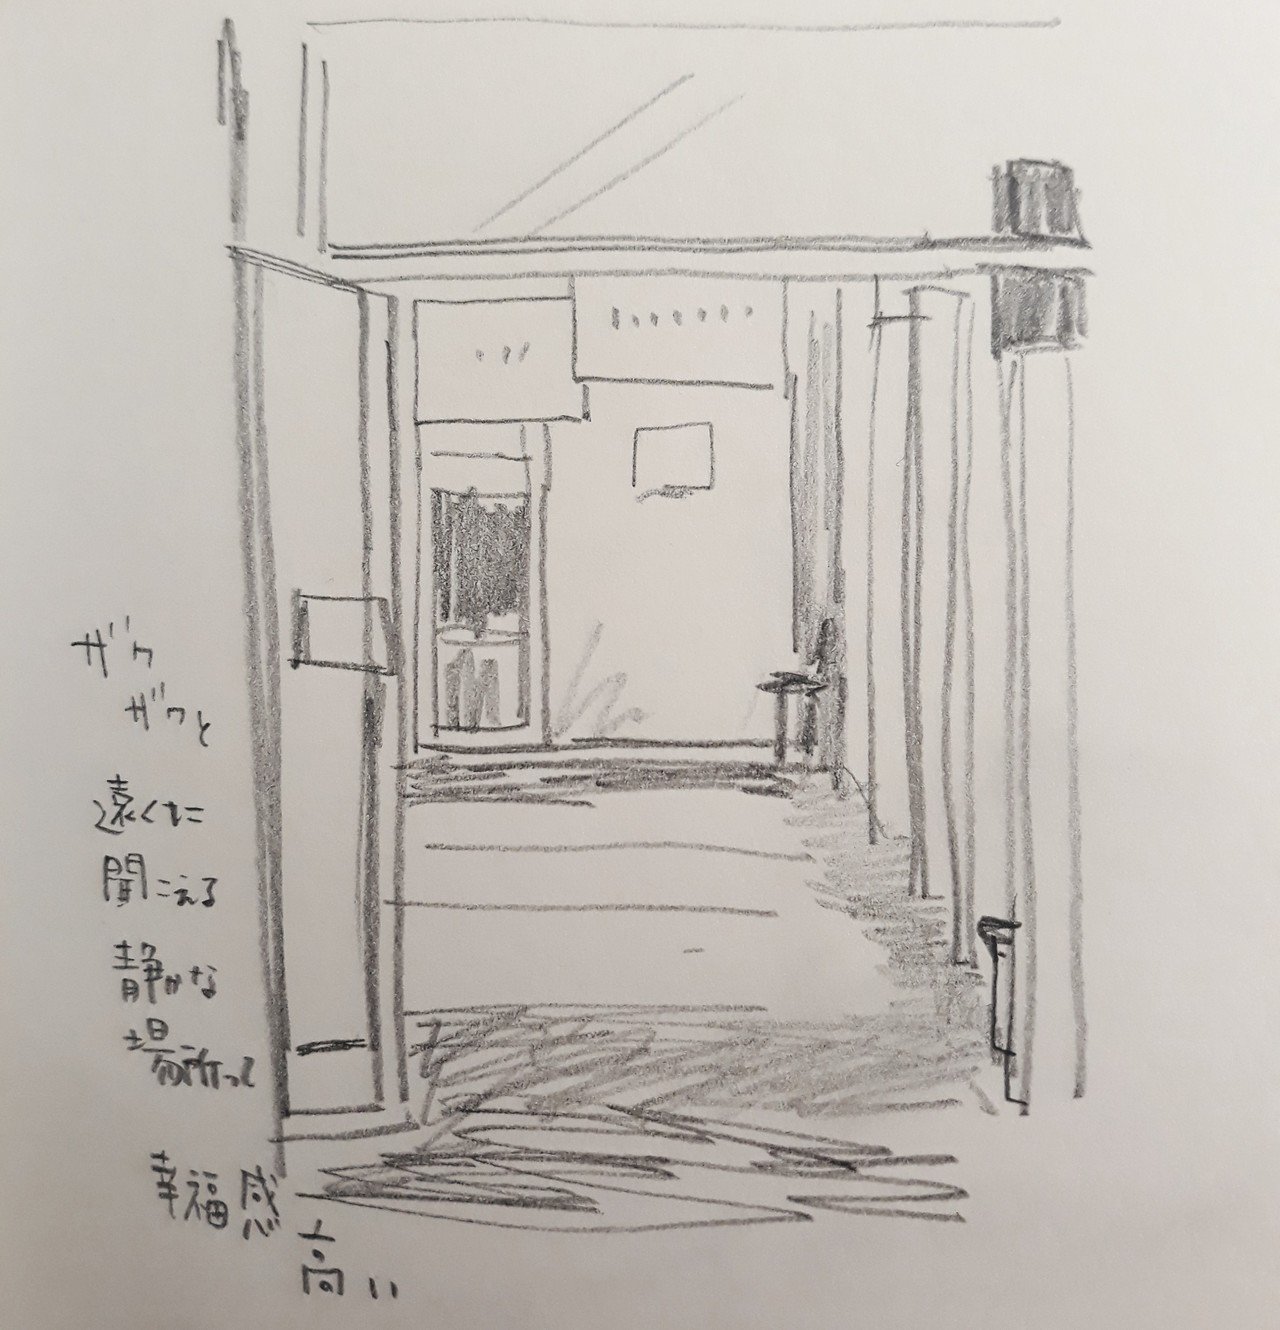 ザワ
ザワと
遠くに
聞こえる
静かな
場所って
幸福感
高い